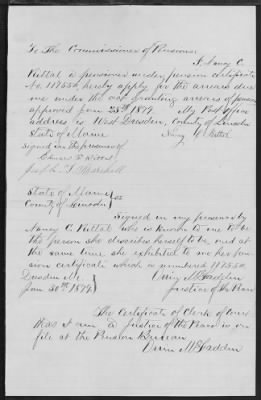 To The Commissioner of Pensions
I Nancy C.
Kittal a pensioner under pension certificate
No. 117550, hereby apply for the arrears due
me under the act granting arrears of pensions
approved Jan 25th 1879. My Post office
address is West Dresden, County of Lincoln
State of Maine Nancy C Kittal
Signed in the presence of
State of Maine
County of Lincoln } ss
Signed in my presence by
Nancy C. Kittal who is known to me to be
the person she describes herself to be and at
the same time she exhibited to me her pen-
sion certificate which is numbered 117550
Dresden Me
Jan 30th 1879. Justice of the Peace
The Certificate of Clerk of Court
that I am a Justice of the Peace is on
file at the Pension Bureau